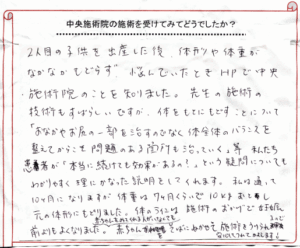 中央施術院の施術を受けてみてどうでしたか？
2人目の子供を出産した後、体形や体重が
なかなかもどらず、悩んでいたときHPで中央
施術院のことを知りました。先生の施術の
技術もすばらしいですが、体をもとにもどすことについて
「おなかやお尻の一部を治すのでなく体全体のバランスを
整えてからこそ問題のある箇所も治っていく」等 私たち
患者が「本当に続けても効果があるの！」という疑問についても
わかりやすく理にかなった説明をしてくれます。私は通って
10ヶ月になりますが体重は9ヶ月くらいで10kgおち
元の体形にもどりました。体のラインは施術のおかげで
前よりよくなりました。赤ちゃん そばにねかせて施術